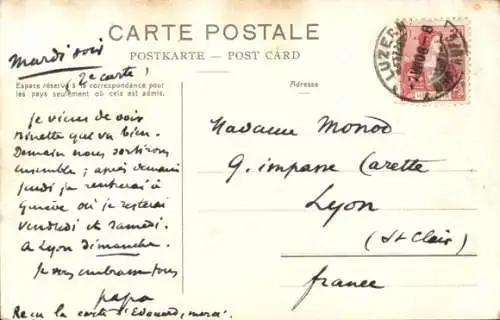 CARTE POSTALE
POSTKARTE — POST CARD
Espace réservé à la correspondance pour
les pays seulement où cela est admis.
Adresse
LUZERN
Mardi soir
(2e carte)
Je viens de voir
Minette qui va bien.
Demain nous sortirons
ensemble ; après demain
jeudi je rentrerai à
Genève où je resterai
vendredi et samedi.
A Lyon dimanche.
Je vous embrasse tous
papa
Reçu la carte d'Edouard, merci.
Madame Monod
9. impasse Carette
Lyon
(St Clair)
France